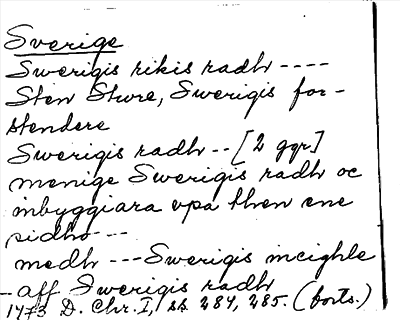 Sverige
Swerigis rikis radh ----
Sten Sture, Swerigis for-
stendere
Swerigis radh -- [2 ggr]
menige Swerigis radh oc
inbyggiara vpa then ene
sidho ---
medh --- Swerigis incighle
- aff Swerigis radh
1473 D. Chr. I, ss. 284, 285. (forts.)